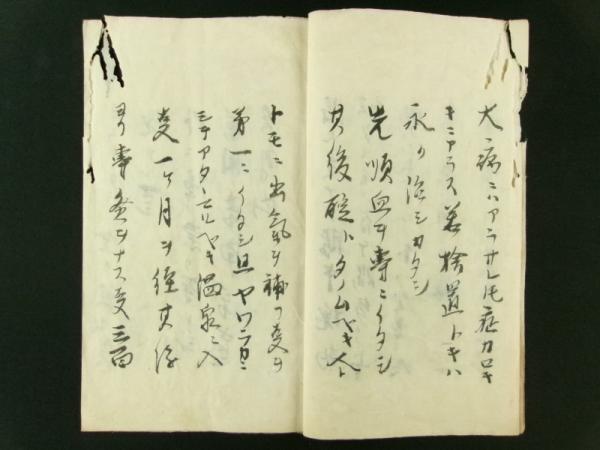 大病ニハアラサレ𪜈症カロキ
キニアラス若捨置トキハ
永ク治シカタシ
先順血ヲ専ニイタシ
其後醫トタノムヘキ人ト
トモニ出氣ヲ補フ叓ヲ
第一ニイタシ且ヤワラカニ
シテアタルヘキ温泉ニ入
叓一ヶ月ヲ経其後
ヨリ専灸ヲナス叓三百